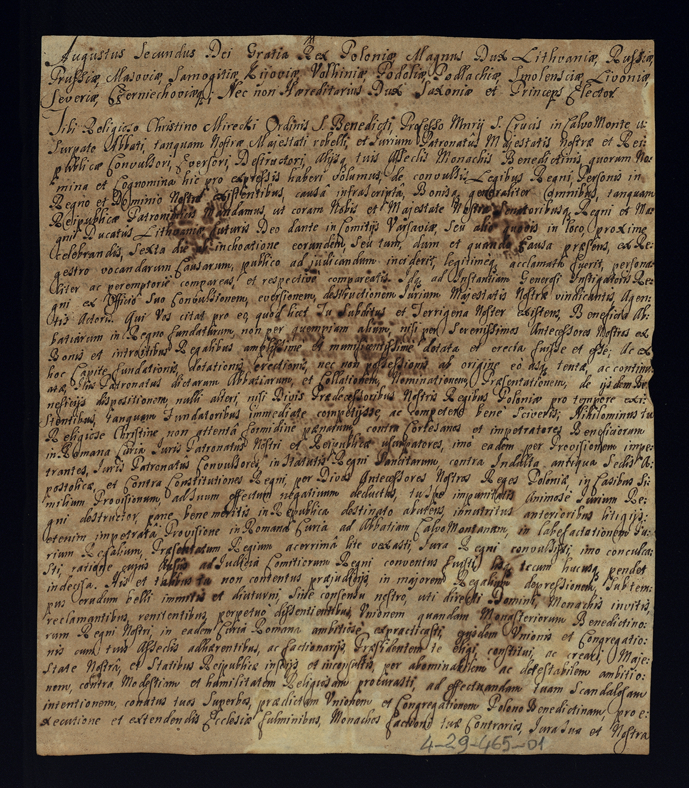 Augustus Secundus Dei Gratia Rex Poloniæ Magnus Dux Lithuaniæ, Russiæ,
Prussiæ, Masoviæ, Samogitiæ, Kijoviæ, Volhiniæ Podoliæ, Podlachiæ, Smolensciæ, Livoniæ,
Severiæ, Czerniechoviæq; Nec non Hæreditarius Dux Saxoniæ et Princeps Elector
Tibi Religioso Christino Mirecki Ordinis S. Benedicti, Professo Mnrij S. Crucis in Calvo Monte u-
surpato Abbati, tanquam Nostræ Majestati rebelli, et Jurium Patronatus Majestatis Nostræ et Rei-
publicæ Convulsori, Eversori, Destructori, Alijsq tuis Asseclis Monachis Benedictinis, quorum No-
mina et Cognomina hic pro expressis haberi volumus, de convulsis Legibus Regni, Personis in
Regno et Dominio Nostro existentibus, causa infrascripta, Bonisq generaliter omnibus, tanquam
Reipublicæ Patronis Mandamus, ut coram Nobis et Majestate Nostra Senatoribusq Regni et Ma-
gni Ducatus Lithuaniæ futuris Deo dante in Comitijs Varsaviæ, Seu alio in loco proxime
Celebrandis, Sexta die inchoatione eorundem, Seu tum, dum et quando Causa præsens, ex Re-
gestro vocandarum Causarum, publico ad judicandum inciderit, legitimeq acclamata fuerit, persona-
liter ac peremptorie compareas, et respective compareatis. Idq ad Instantiam Generosi Instigatoris Re-
gni ex Officio Suo Convulsionem, eversionem, destructionem Jurium Majestatis Nostræ vindicantis, Agen-
tis Actoris. Qui Vos citat pro eo, quod licet Tu Subditus et Terrigena Noster existens, Beneficia Ab-
batiarum in Regno fundatarum, non per quempiam alium, nisi per Serenissimos Antecessores Nostros ex
Bonis et introitibus Regalibus amplissime et munificentissime dotata et erecta fuisse et esse; Ac ex
hoc Capite fundationis, dotationis, erectionis, nec non possessionis ab origine eo usq tentæ, ac continu-
atæ, Jus Patronatus dictarum Abbatiarum, et Collationem, Nominationem, Præsentationem, de ijsdem Be-
neficijs dispositionem, nulli alteri, nisi Divis Prædecessoribus Nostris Regibus Poloniæ pro tempore exi-
stentibus, tanquam Fundatoribus immediate competijsse, ac competere bene sciveris; Nihilominus tu
Religiose Christine non attenta formidine pænarum, contra Cortesanos et impetratores Beneficiorum
in Romana Curia Juris Patronatus Nostri et Reipublicæ usurpatores, imo eadem per Provisionem impe-
trantes, Juris Patronatus Convulsores, in Statutis Regni Sancitarum, contra Indulta antiqua Sedis A-
postolicæ, et Contra Constitutiones Regni, per Divos Antecessores Nostros Reges Poloniæ, in Casibus Si-
milium Provisionum, ad Suum effectum negativum deductas, tu Spe impunitatis Animose Jurium Re-
gni destructor, pane bene meritis in Republica destinato abutens, innutritus anterioribus litigijs,
etenim impetrata Provisione in Romana Curia ad Abbatiam Calvo Montanam, in labefactationem Ju-
rium Regalium, Præsentatum Regium acerrima lite vexasti, Jura Regni convulsisti, imo conculca-
sti, ratione cujus ad Judicia Comitiorum Regni conventus fuisti tecum hucusq pendet
indecisa. His et talibus tu non contentus præjudicijs in majorem Regalium depressionem, Sub tem-
pus crudum belli immitis et diuturni, Sine consensu nostro, uti directi Domini, Monachis invitis,
reclamantibus, renitentibus, perpetuo dissentientibus Unionem quandam Monasteriorum Benedictino-
rum Regni Nostri, in eadem Curia Romana ambitiose expracticasti, ejusdem Unionis et Congregatio-
nis cum tuis Asseclis adhærentibus, ac factionarijs, Præsidentem te eligi, constitui, ac creari, Maje-
state Nostra, et Statibus Reipublicæ insciis et inconsultis, per abominabilem ac detestabilem ambitio-
nem, contra Modestiam et humilitatem Religiosam procurasti, ad effectuandam tuam Scandalosam
intentionem, conatus tuos Superbos, prædictam Unionem et Congregationem Polono Benedictinam, pro e-
xecutione et extendendis Ecclesiæ fulminibus, Monachos factioni tuæ Contrarios, Jura Sua et Nostra
4-29-465-01